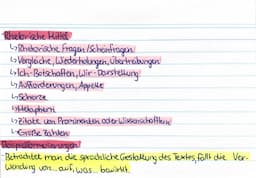 Rhetorische Mittel
↳ Rhetorische Fragen/Scheinfragen
↳ Vergleiche, Wiederholungen, Übertreibungen
↳ Ich-Botschaften, Wir-Darstellung
↳ Aufforderungen, Appelle
↳ Scherze
↳ Metaphern
↳ Zitate von Prominenten oder Wissenschaftlern
↳ Große Zahlen
Beispielformulierungen
Betrachtet man die sprachliche Gestaltung des Textes, fällt die Ver-
wendung von... auf, was... bewirkt.